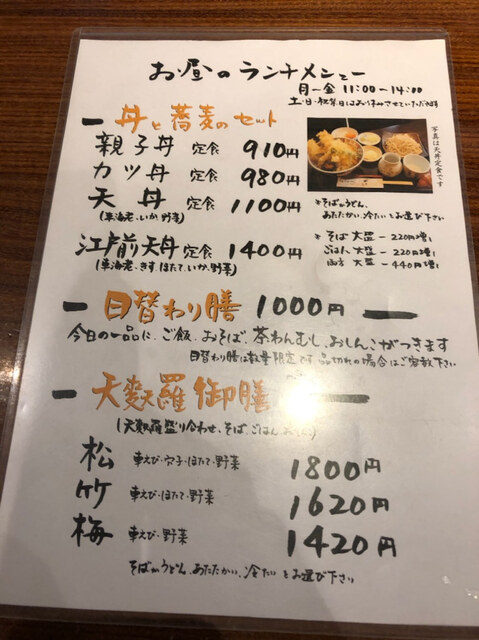 お昼のランチメニュー
月〜金 11:00〜14:00
土・日・祝祭日はお休みさせていただきます
丹と蕎麦のセット
親子丼 定食 910円
カツ丼 定食 980円
天丼 定食 1100円
(車海老、いか、野菜)
江戸前天丼 定食 1400円
(車海老、きす、ほたて、いか、野菜)
写真は天丼定食です
*そばかうどん、
あたたかい、冷たいとお選び下さい
*そば 大盛 - 220円増し
ごはん 大盛 - 220円増し
両方 大盛 - 440円増し
日替わり膳 1000円
今日の一品に、ご飯、おそば、茶わんむし、おしんこがつきます
日替わり膳は数量限定です 品切れの場合はご容赦下さい
天麩羅御膳
(天麩羅盛り合わせ、そば、ごはん、
松 車えび・穴子・ほたて・野菜 1800円
竹 車えび・ほたて・野菜 1620円
梅 車えび・野菜 1420円
そばかうどん、あたたかい、冷たいとお選び下さい